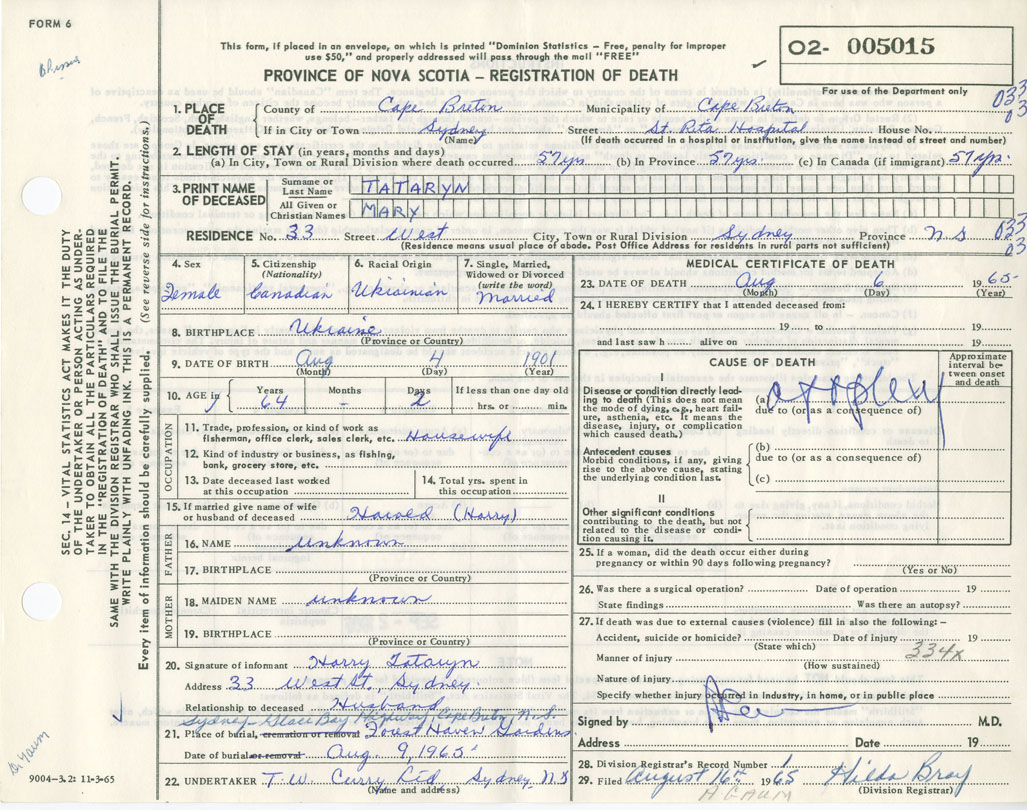 FORM 6
This form, if placed in an envelope, on which is printed "Dominion Statistics – Free, penalty for improper
use $50," and properly addressed will pass through the mail "FREE"
PROVINCE OF NOVA SCOTIA – REGISTRATION OF DEATH
02- 005015
For use of the Department only
033
03
SEC. 14 – VITAL STATISTICS ACT MAKES IT THE DUTY
OF THE UNDERTAKER OR PERSON ACTING AS UNDER-
TAKER TO OBTAIN ALL THE PARTICULARS REQUIRED
IN THE "REGISTRATION OF DEATH" AND TO FILE THE
SAME WITH THE DIVISION REGISTRAR WHO SHALL ISSUE THE BURIAL PERMIT.
WRITE PLAINLY WITH UNFADING INK. THIS IS A PERMANENT RECORD.
Every item of information should be carefully supplied. (See reverse side for instructions.)
1. PLACE OF DEATH
County of Cape Breton Municipality of Cape Breton
If in City or Town Sydney Street St. Rita Hospital House No.
(Name) (If death occurred in a hospital or institution, give the name instead of street and number)
2. LENGTH OF STAY (in years, months and days)
(a) In City, Town or Rural Division where death occurred 57 yrs. (b) In Province 57 yrs. (c) In Canada (if immigrant) 57 yrs.
3. PRINT NAME OF DECEASED
Surname or Last Name TATARYN
All Given or Christian Names MARY
RESIDENCE No. 33 Street West City, Town or Rural Division Sydney Province N S
033
03
(Residence means usual place of abode. Post Office Address for residents in rural parts not sufficient)
4. Sex
Female
5. Citizenship
(Nationality)
Canadian
6. Racial Origin
Ukrainian
7. Single, Married,
Widowed or Divorced
(write the word)
Married
8. BIRTHPLACE Ukraine
(Province or Country)
9. DATE OF BIRTH Aug 4 1901
(Month) (Day) (Year)
10. AGE in
Years Months Days If less than one day old
64 – 2 hrs. or min.
OCCUPATION
11. Trade, profession, or kind of work as
fisherman, office clerk, sales clerk, etc. Housewife
12. Kind of industry or business, as fishing,
bank, grocery store, etc.
13. Date deceased last worked
at this occupation
14. Total yrs. spent in
this occupation
15. If married give name of wife
or husband of deceased Harold (Harry)
FATHER
16. NAME unknown
17. BIRTHPLACE
(Province or Country)
MOTHER
18. MAIDEN NAME unknown
19. BIRTHPLACE
(Province or Country)
20. Signature of informant Harry Tataryn
Address 33 West St., Sydney
Relationship to deceased Husband
Sydney Glace Bay Highway, Cape Breton, N.S.
21. Place of burial, cremation or removal Forest Haven Gardens
Date of burial or removal Aug. 9, 1965
22. UNDERTAKER T.W. Curry Ltd Sydney N.S
(Name and address)
MEDICAL CERTIFICATE OF DEATH
23. DATE OF DEATH Aug 6 1965
(Month) (Day) (Year)
24. I HEREBY CERTIFY that I attended deceased from:
19 to 19
and last saw h alive on 19
CAUSE OF DEATH
Approximate
interval be-
tween onset
and death
I
Disease or condition directly lead-
ing to death (This does not mean
the mode of dying, e.g., heart fail-
ure, asthenia, etc. It means the
disease, injury, or complication
which caused death.)
(a)
due to (or as a consequence of)
Antecedent causes
Morbid conditions, if any, giving
rise to the above cause, stating
the underlying condition last.
(b)
due to (or as a consequence of)
(c)
II
Other significant conditions
contributing to the death, but not
related to the disease or condi-
tion causing it.
25. If a woman, did the death occur either during
pregnancy or within 90 days following pregnancy?
(Yes or No)
26. Was there a surgical operation? Date of operation 19
State findings Was there an autopsy?
27. If death was due to external causes (violence) fill in also the following: –
Accident, suicide or homicide? Date of injury 19
(State which)
334x
Manner of injury
(How sustained)
Nature of injury
Specify whether injury occurred in industry, in home, or in public place
Signed by M.D.
Address Date 19
28. Division Registrar's Record Number 1
29. Filed August 16th 1965 Hilda Bray
(Division Registrar)
H GAUM
Dr Gaum
9004-3.2: 11-3-65